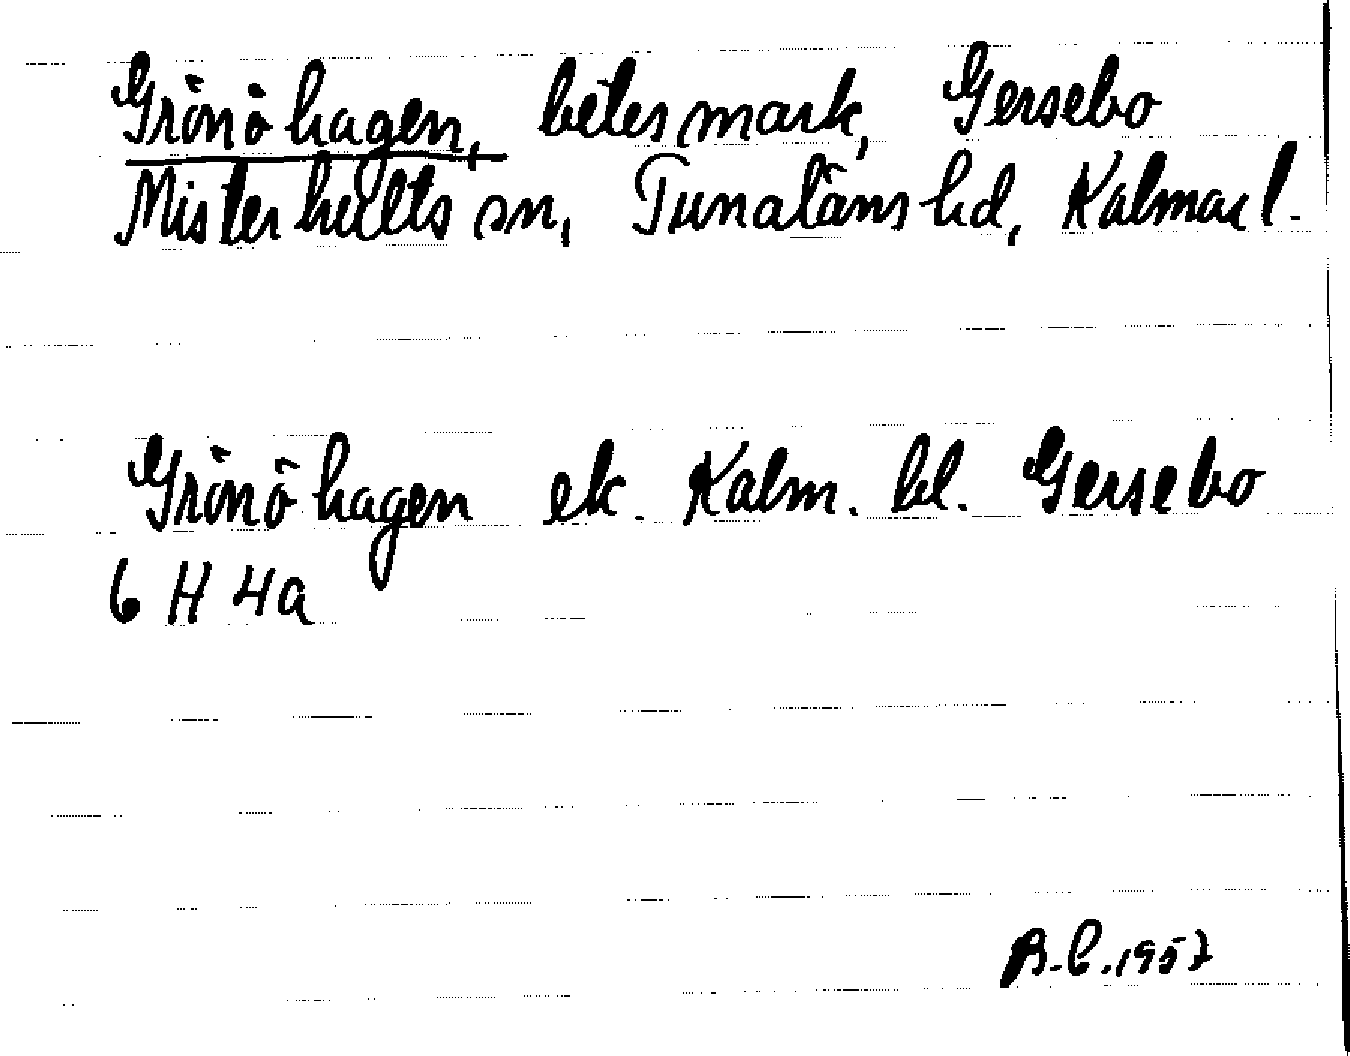 Grönöhagen, betesmark, Gersebo
Misterhults sn, Tunaläns hd, Kalmar l.
Grönöhagen ek. Kalm. bl. Gersebo
6 H 4a
B.E. 1957